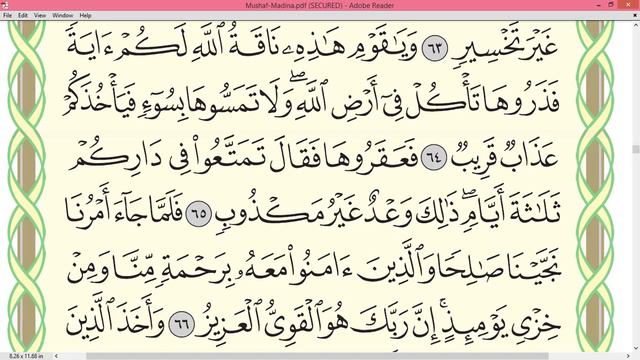 Mushaf-Madina.pdf (SECURED) - Adobe Reader
File Edit View Window Help
غَيْرَ تَخْسِيرٍ ٦٣ وَيَٰقَوْمِ هَٰذِهِۦ نَاقَةُ ٱللَّهِ لَكُمْ ءَايَةً
فَذَرُوهَا تَأْكُلْ فِىٓ أَرْضِ ٱللَّهِۖ وَلَا تَمَسُّوهَا بِسُوٓءٍ فَيَأْخُذَكُمْ
عَذَابٌ قَرِيبٌ ٦٤ فَعَقَرُوهَا فَقَالَ تَمَتَّعُوا۟ فِى دَارِكُمْ
ثَلَٰثَةَ أَيَّامٍۖ ذَٰلِكَ وَعْدٌ غَيْرُ مَكْذُوبٍ ٦٥ فَلَمَّا جَآءَ أَمْرُنَا
نَجَّيْنَا صَٰلِحًا وَٱلَّذِينَ ءَامَنُوا۟ مَعَهُۥ بِرَحْمَةٍ مِّنَّا وَمِنْ
خِزْىِ يَوْمِئِذٍۗ إِنَّ رَبَّكَ هُوَ ٱلْقَوِىُّ ٱلْعَزِيزُ ٦٦ وَأَخَذَ ٱلَّذِينَ
8.26 x 11.68 in